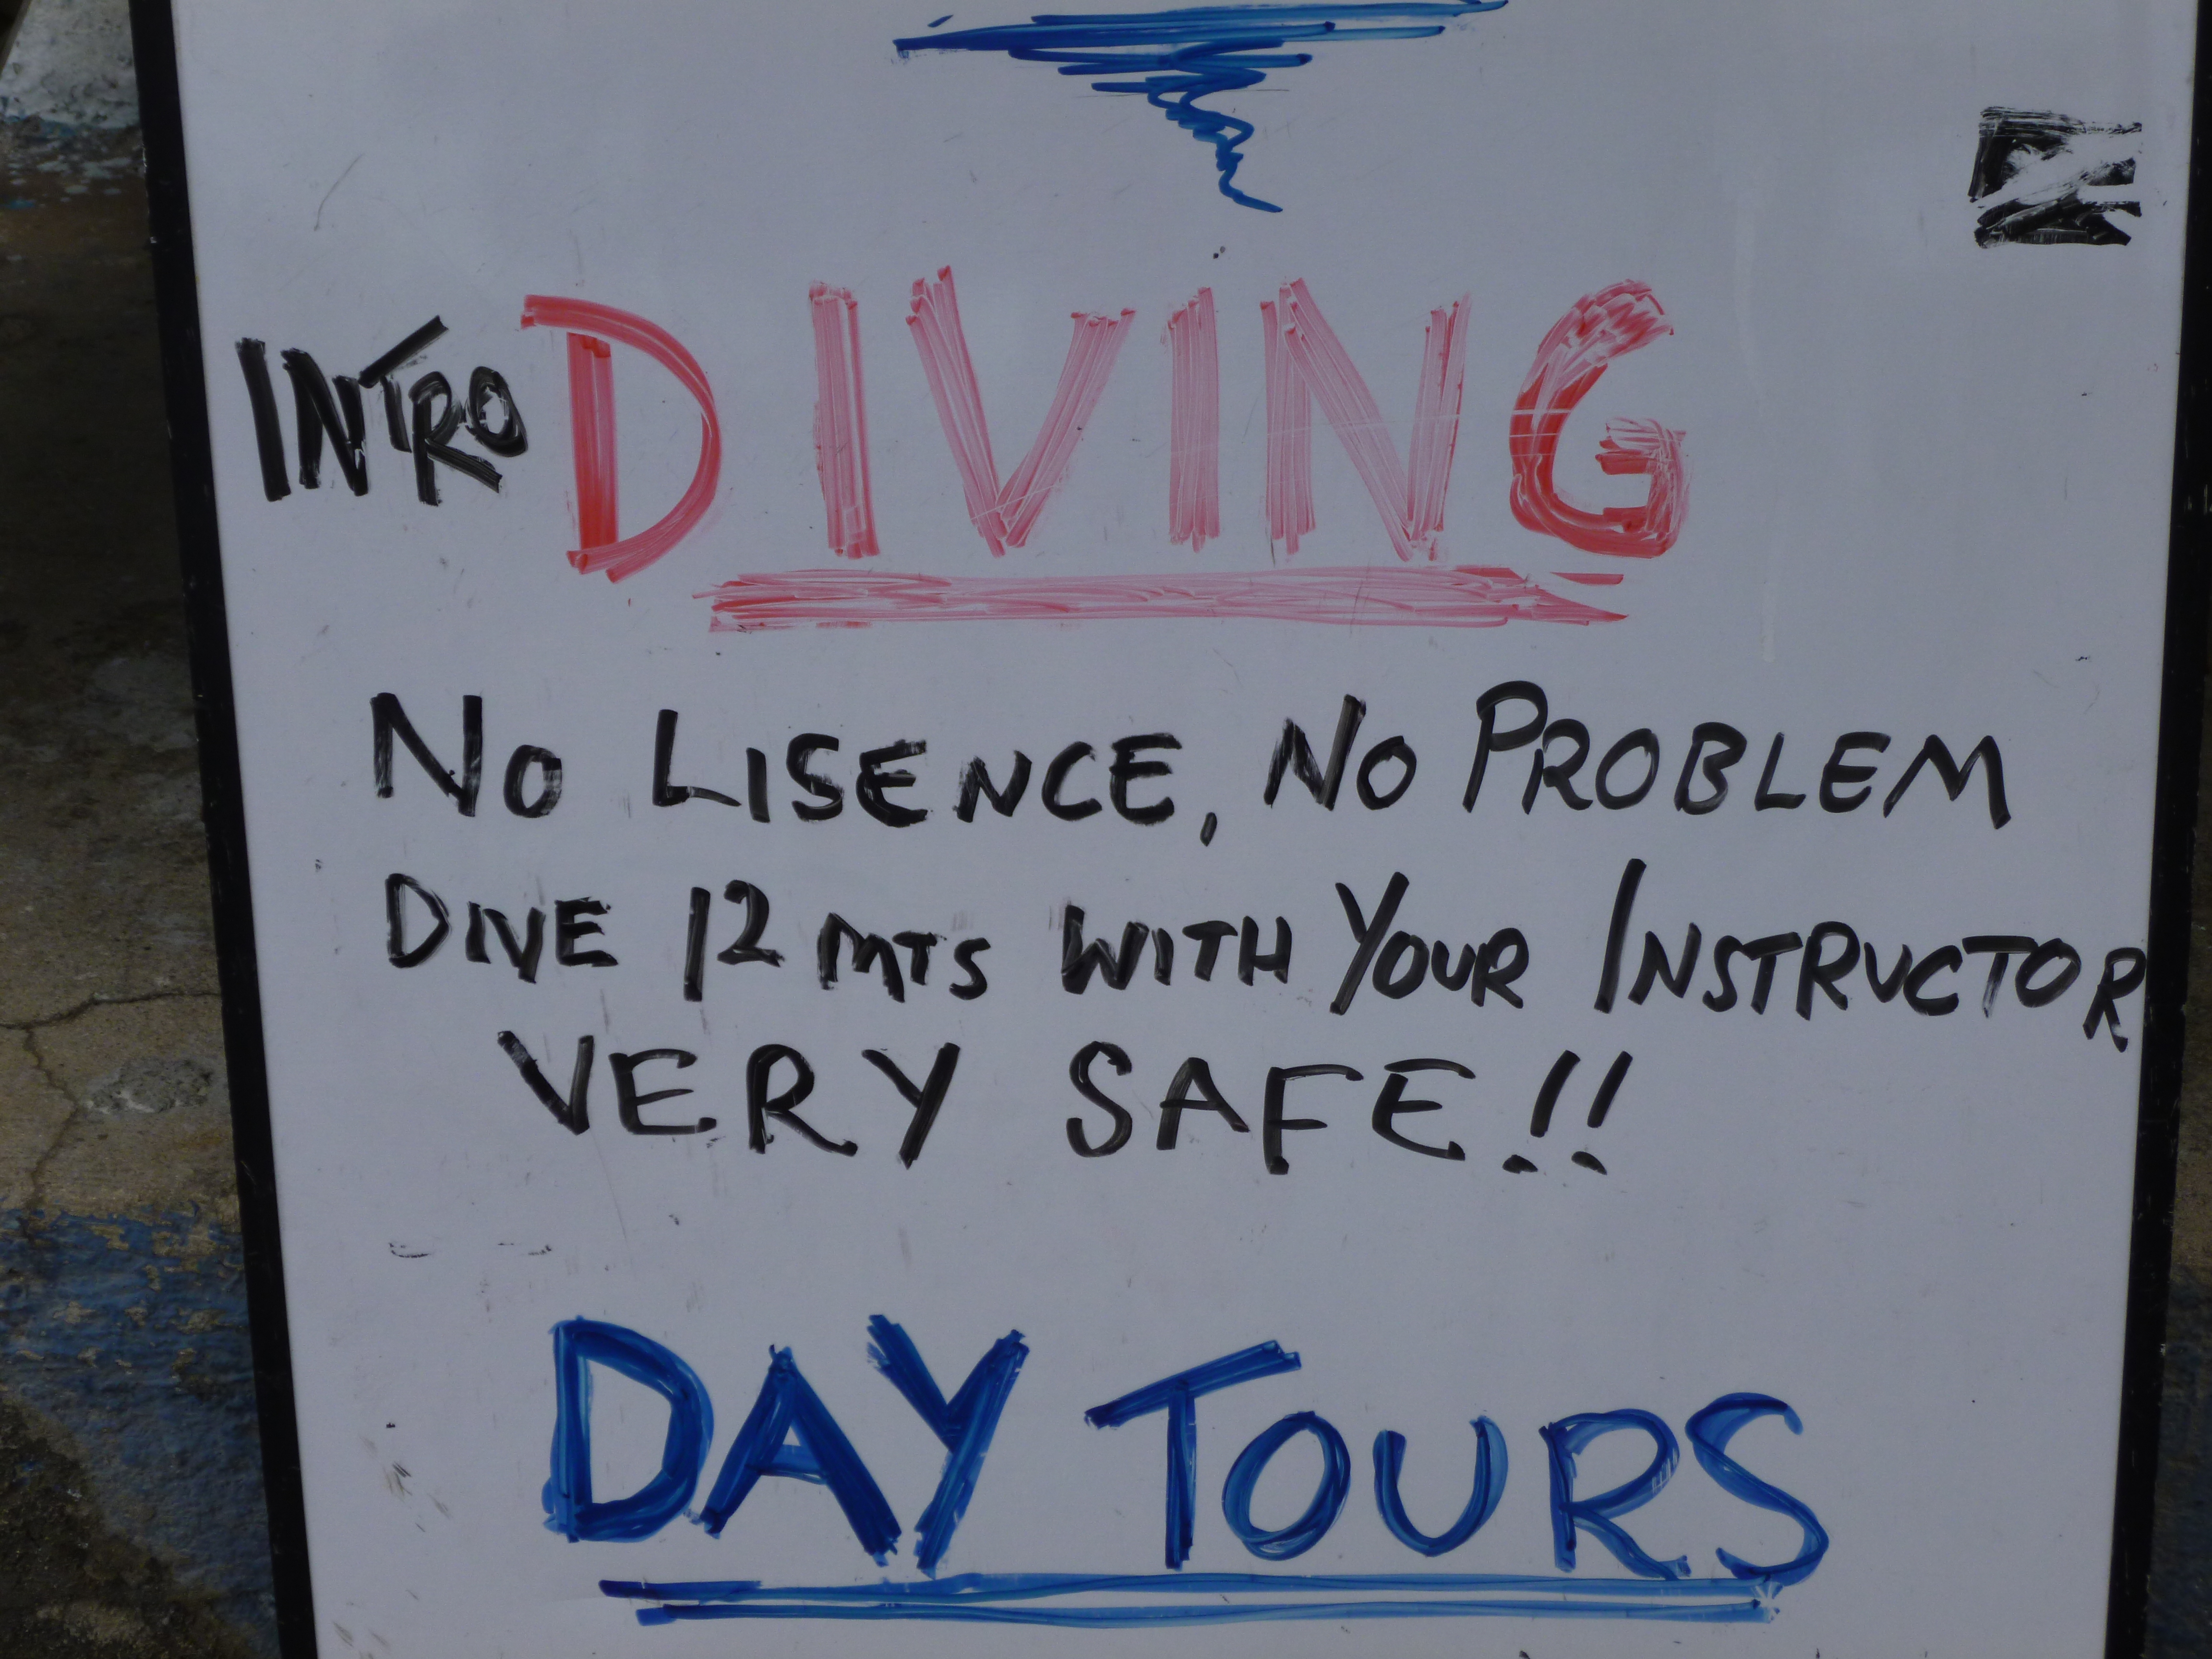 INTRO DIVING
NO LISENCE, NO PROBLEM
DIVE 12 MTS WITH YOUR INSTRUCTOR
VERY SAFE!!
DAY TOURS